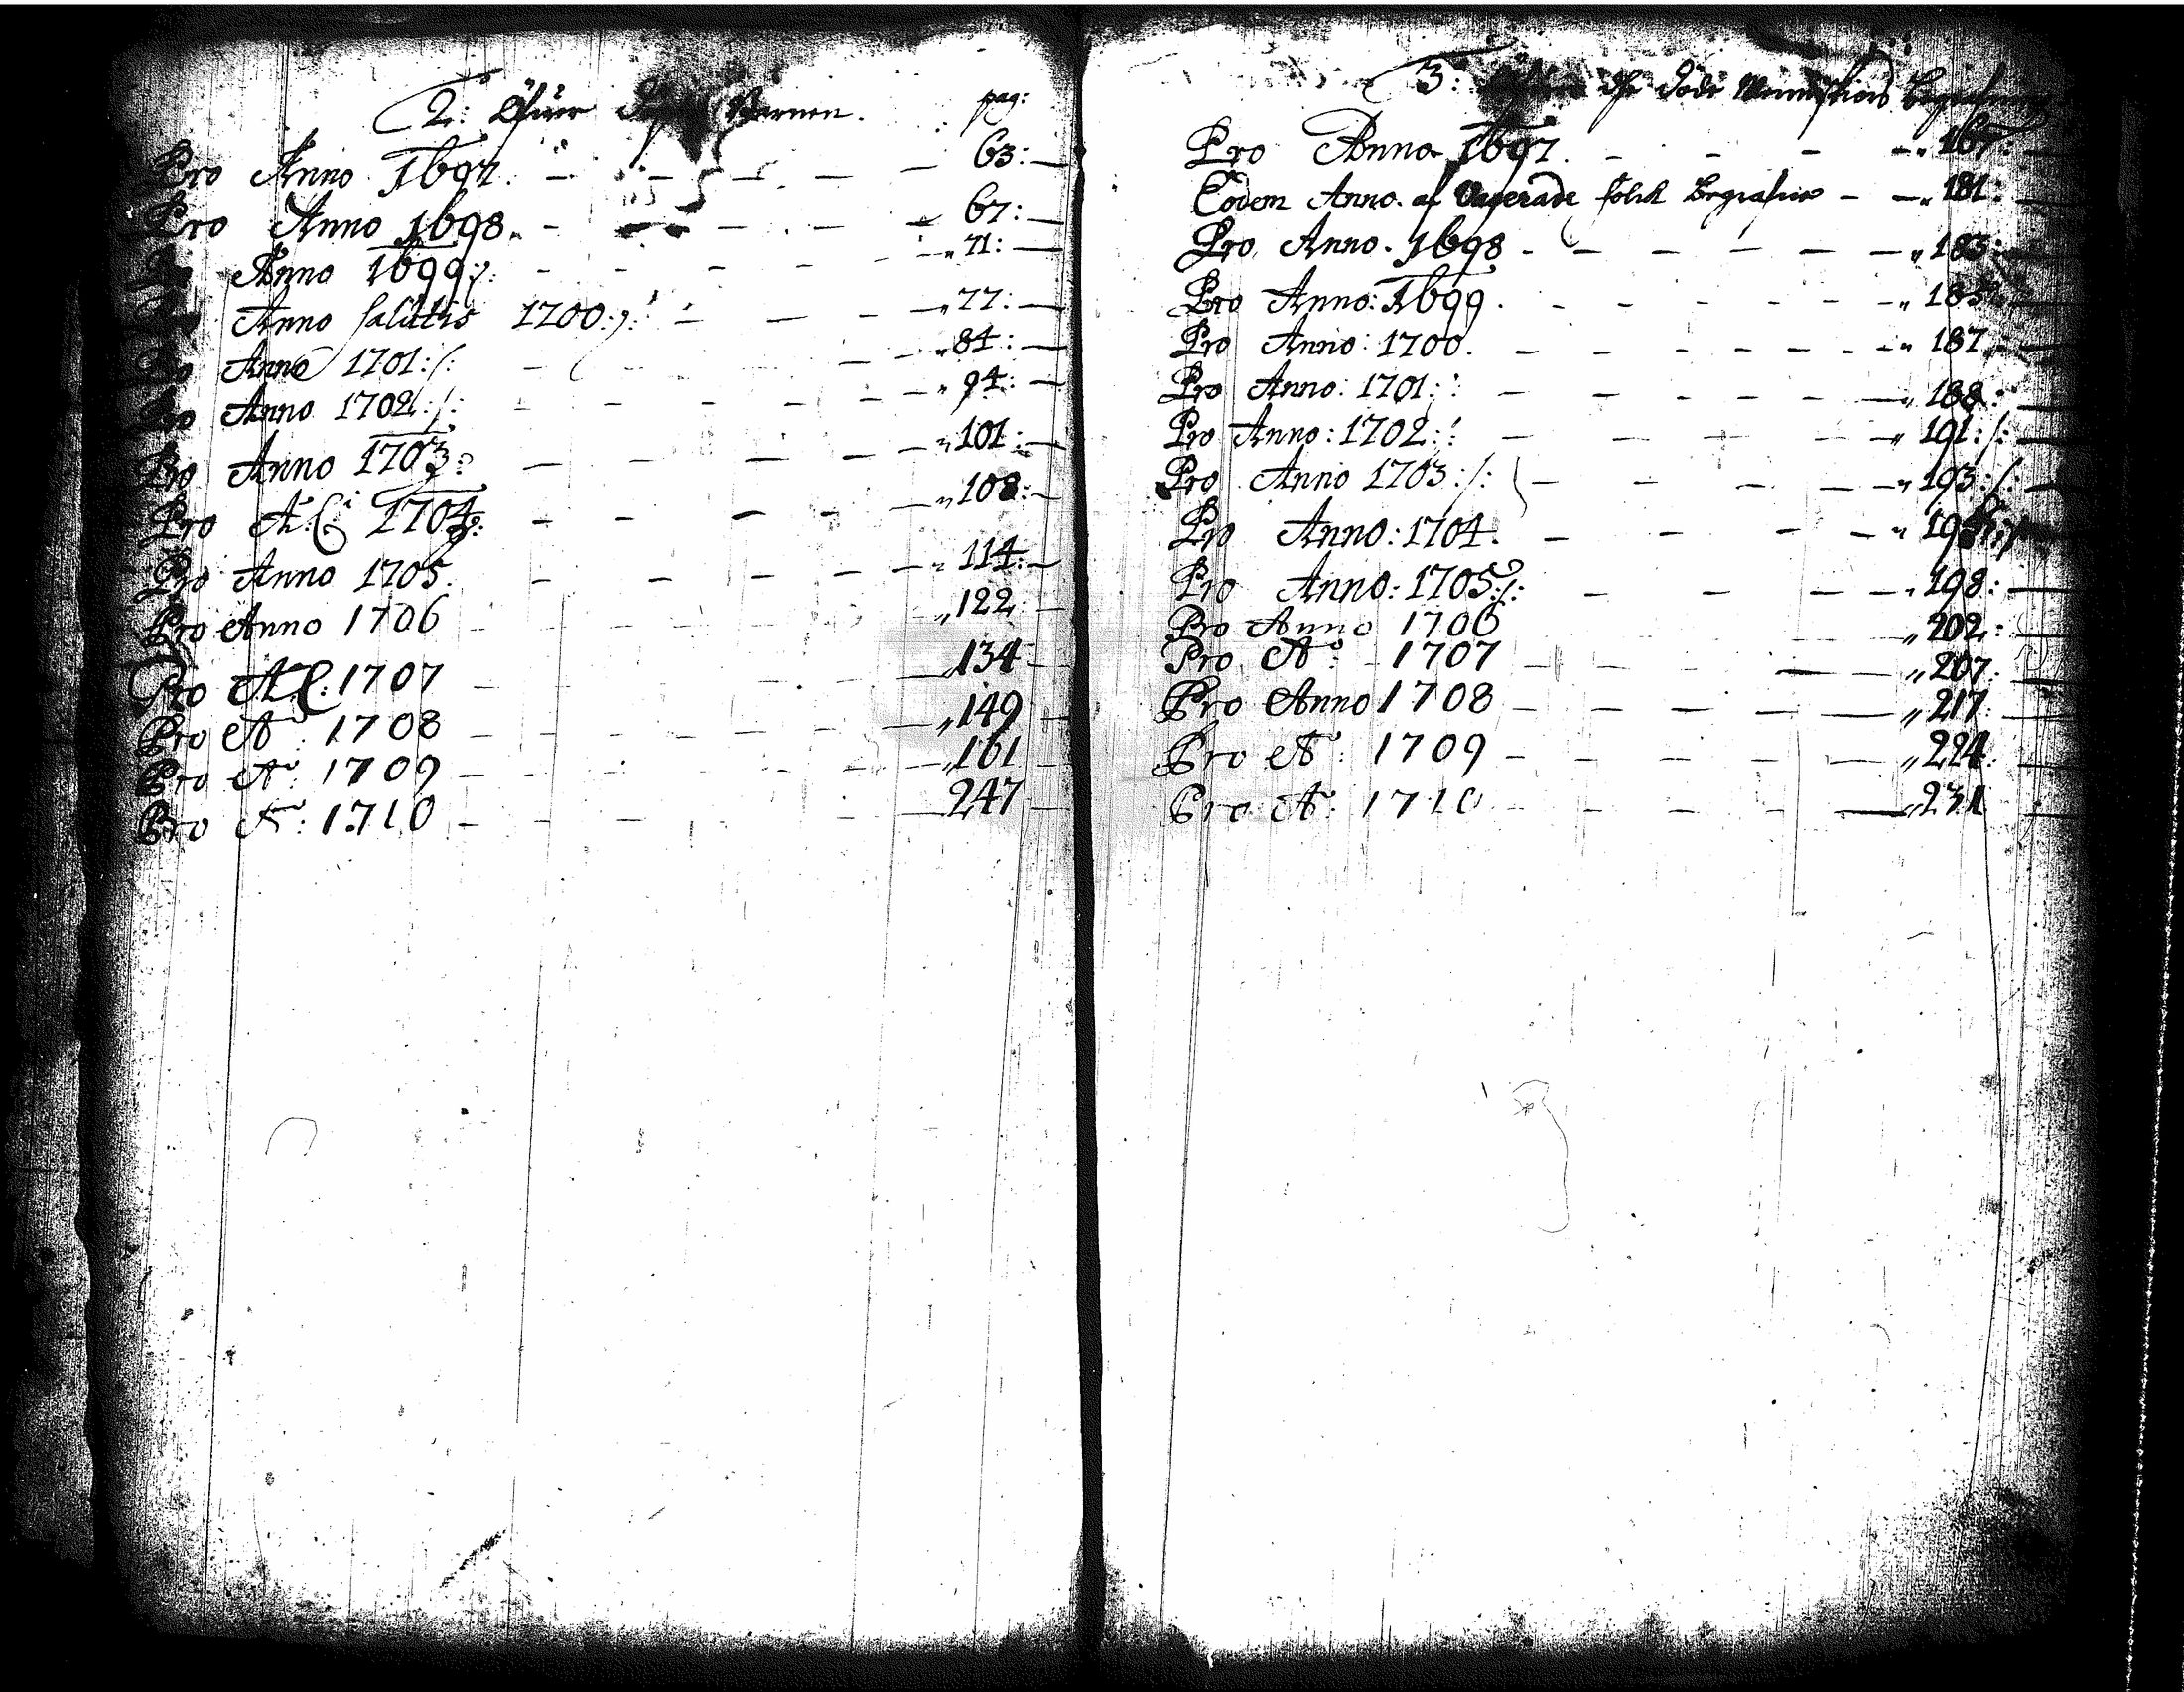 2: Öfwer Barnen. pag:
Pro Anno 1697. 63:
Pro Anno 1698. 67:
Anno 1699:/: 71:
Anno Salutis 1700:/: 77:
Pro Anno 1701:/: 84:
Pro Anno 1702:/: 94:
Pro Anno 1703: 101:
Pro A:C: 1704: 108:
Pro Anno 1705. 114:
Pro Anno 1706 122:
Pro A:C: 1707 134
Pro A°: 1708 149
Pro A°: 1709 161
Pro A°: 1710 247
3: the döde Menniskiors Begrafning
Pro Anno 1697. 167:
Eodem Anno. af folck Begrafne 181:
Pro Anno. 1698 183:
Pro Anno: 1699. 185
Pro Anno: 1700. 187
Pro Anno: 1701: 188:
Pro Anno: 1702: 191:/:
Pro Anno 1703:/: 193:/:
Pro Anno: 1704.
Pro Anno: 1705:/: 198:
Pro Anno 1706 202:
Pro A°: 1707 207:
Pro Anno 1708 217
Pro A°: 1709 224:
Pro A°: 1710 231